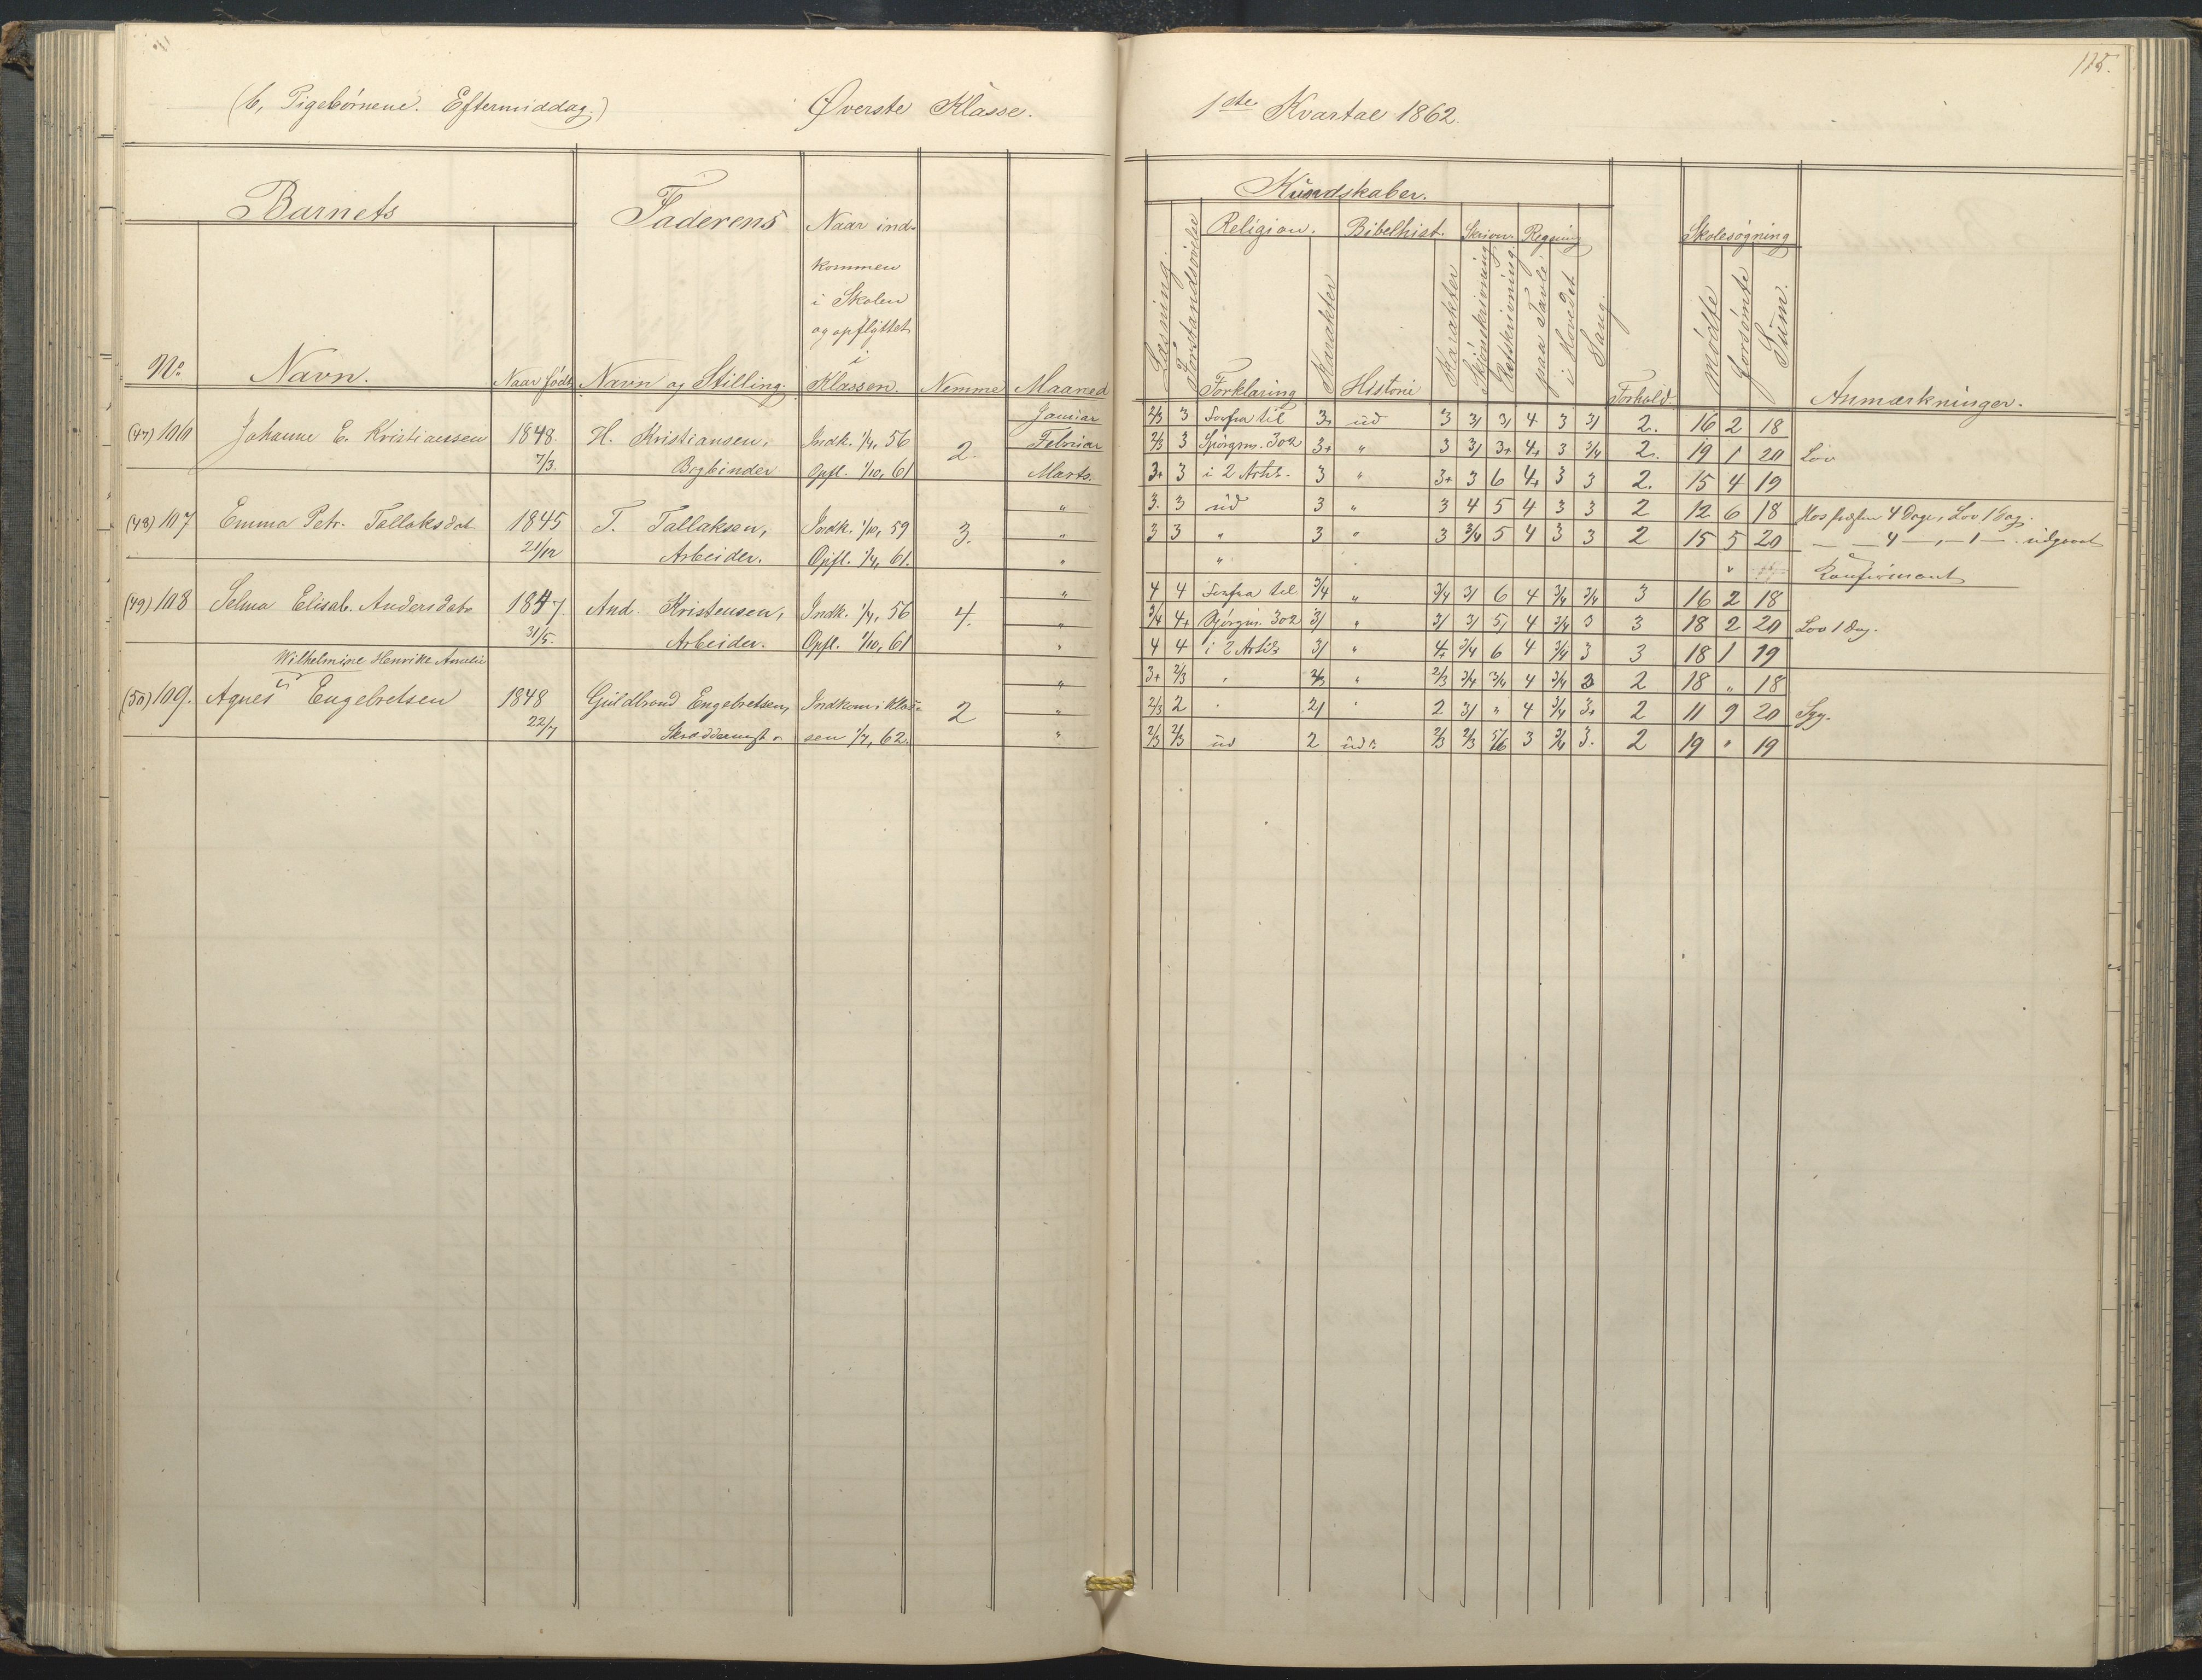 (b, Pigebørnene. Eftermiddag.) Øverste Klasse.
Barnets Faderens Naar ind-
kommen
i Skolen
og opflyttet
i
No Navn. Naar født Navn og Stilling. Klassen. Nemme Maaned
Januar
(47) 106 Johanne E. Kristiansen 1848. H. Kristiansen, Indk. 1/4, 56 2. Februar
7/3. Bogbinder Opfl. 1/10, 61 Marts.
"
(48) 107 Emma Petr. Tallaksdat 1845 T. Tallaksen, Indk. 1/10, 59 3. "
21/12 Arbeider. Opfl. 1/4, 61. "
"
(49) 108 Selma Elisab. Andersdatr 1847 And. Kristensen, Indk. 1/4, 56 4. "
31/5. Arbeider. Opfl. 1/10, 61 "
Wilhelmine Henrike Amelie
"
(50) 109. Agnes Engebretsen 1848 Guldbrand Engebretsen, Indkom i Klas- 2 "
22/7 Skræddermst. sen 1/7, 62. "
115.
1ste Kvartal 1862.
Kundskaber.
Religion. Bibelhist. Skrivn. Regning Skolesøgning
Læsning. Forstandsøvelse Forklaring Karakter Historie Karakter Skjønskrivning Retskrivning paa Tavle i Hovedet Sang. Forhold. mødte forsømte Sum. Anmærkninger.
2/3 3 Forfra til 3 ud 3 3/ 3/ 4 3 3/ 2. 16 2 18
2/3 3 Spørgsm. 302 3+ " 3 3/ 3+ 4+ 3 3/4 2. 19 1 20 Lov
3+ 3 i 2 Artik. 3 " 3+ 3 6 4+ 3 3 2. 15 4 19
3. 3 ud 3 " 3 4 5 4 3 3 2 12 6 18 Hos Præsten 4 Dage, Lov 1 Dag.
3 3 " 3 " 3 3/4 5 4 3 3 2 15 5 20 — — 4 —, — 1 — . udgaaet
" " Konfirmant
4 4 Forfra til 3/4 " 3/4 3/ 6 4 3/4 3/4 3 16 2 18
3/4 4+ Spørgsm. 302 3/ " 3/ 3/ 5/ 4 3/4 3 3 18 2 20 Lov 1 Dag.
4 4 i 2 Artik 3/ " 4+ 3/4 6 4 3/4 3 3 18 1 19
3+ 2/3 " 2/3 " 2/3 3/4 3/4 4 3/4 3 2 18 " 18
2/3 2 " 2/ " 2 3/ " 4 3/4 3+ 2 11 9 20 Syg.
2/3 2/3 ud 2 ud. 2/3 2/3 5/6 3 3/4 3. 2 19 " 19